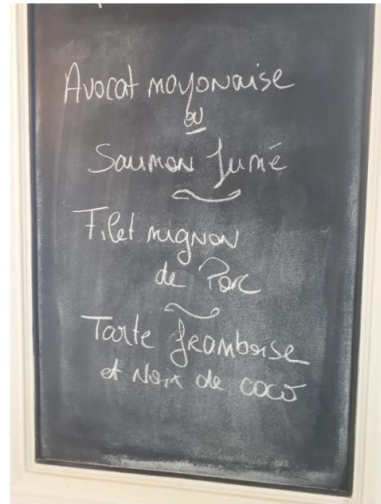 Avocat mayonaise
ou
Saumon fumé
Filet mignon
de Porc
Tarte framboise
et Noix de coco